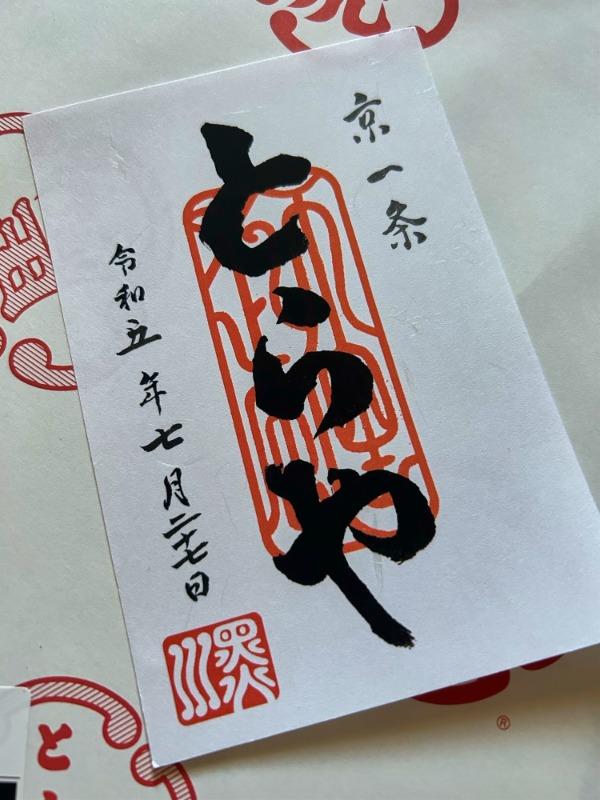 京一条
とらや
令和五年七月二十七日
黒川
と
®